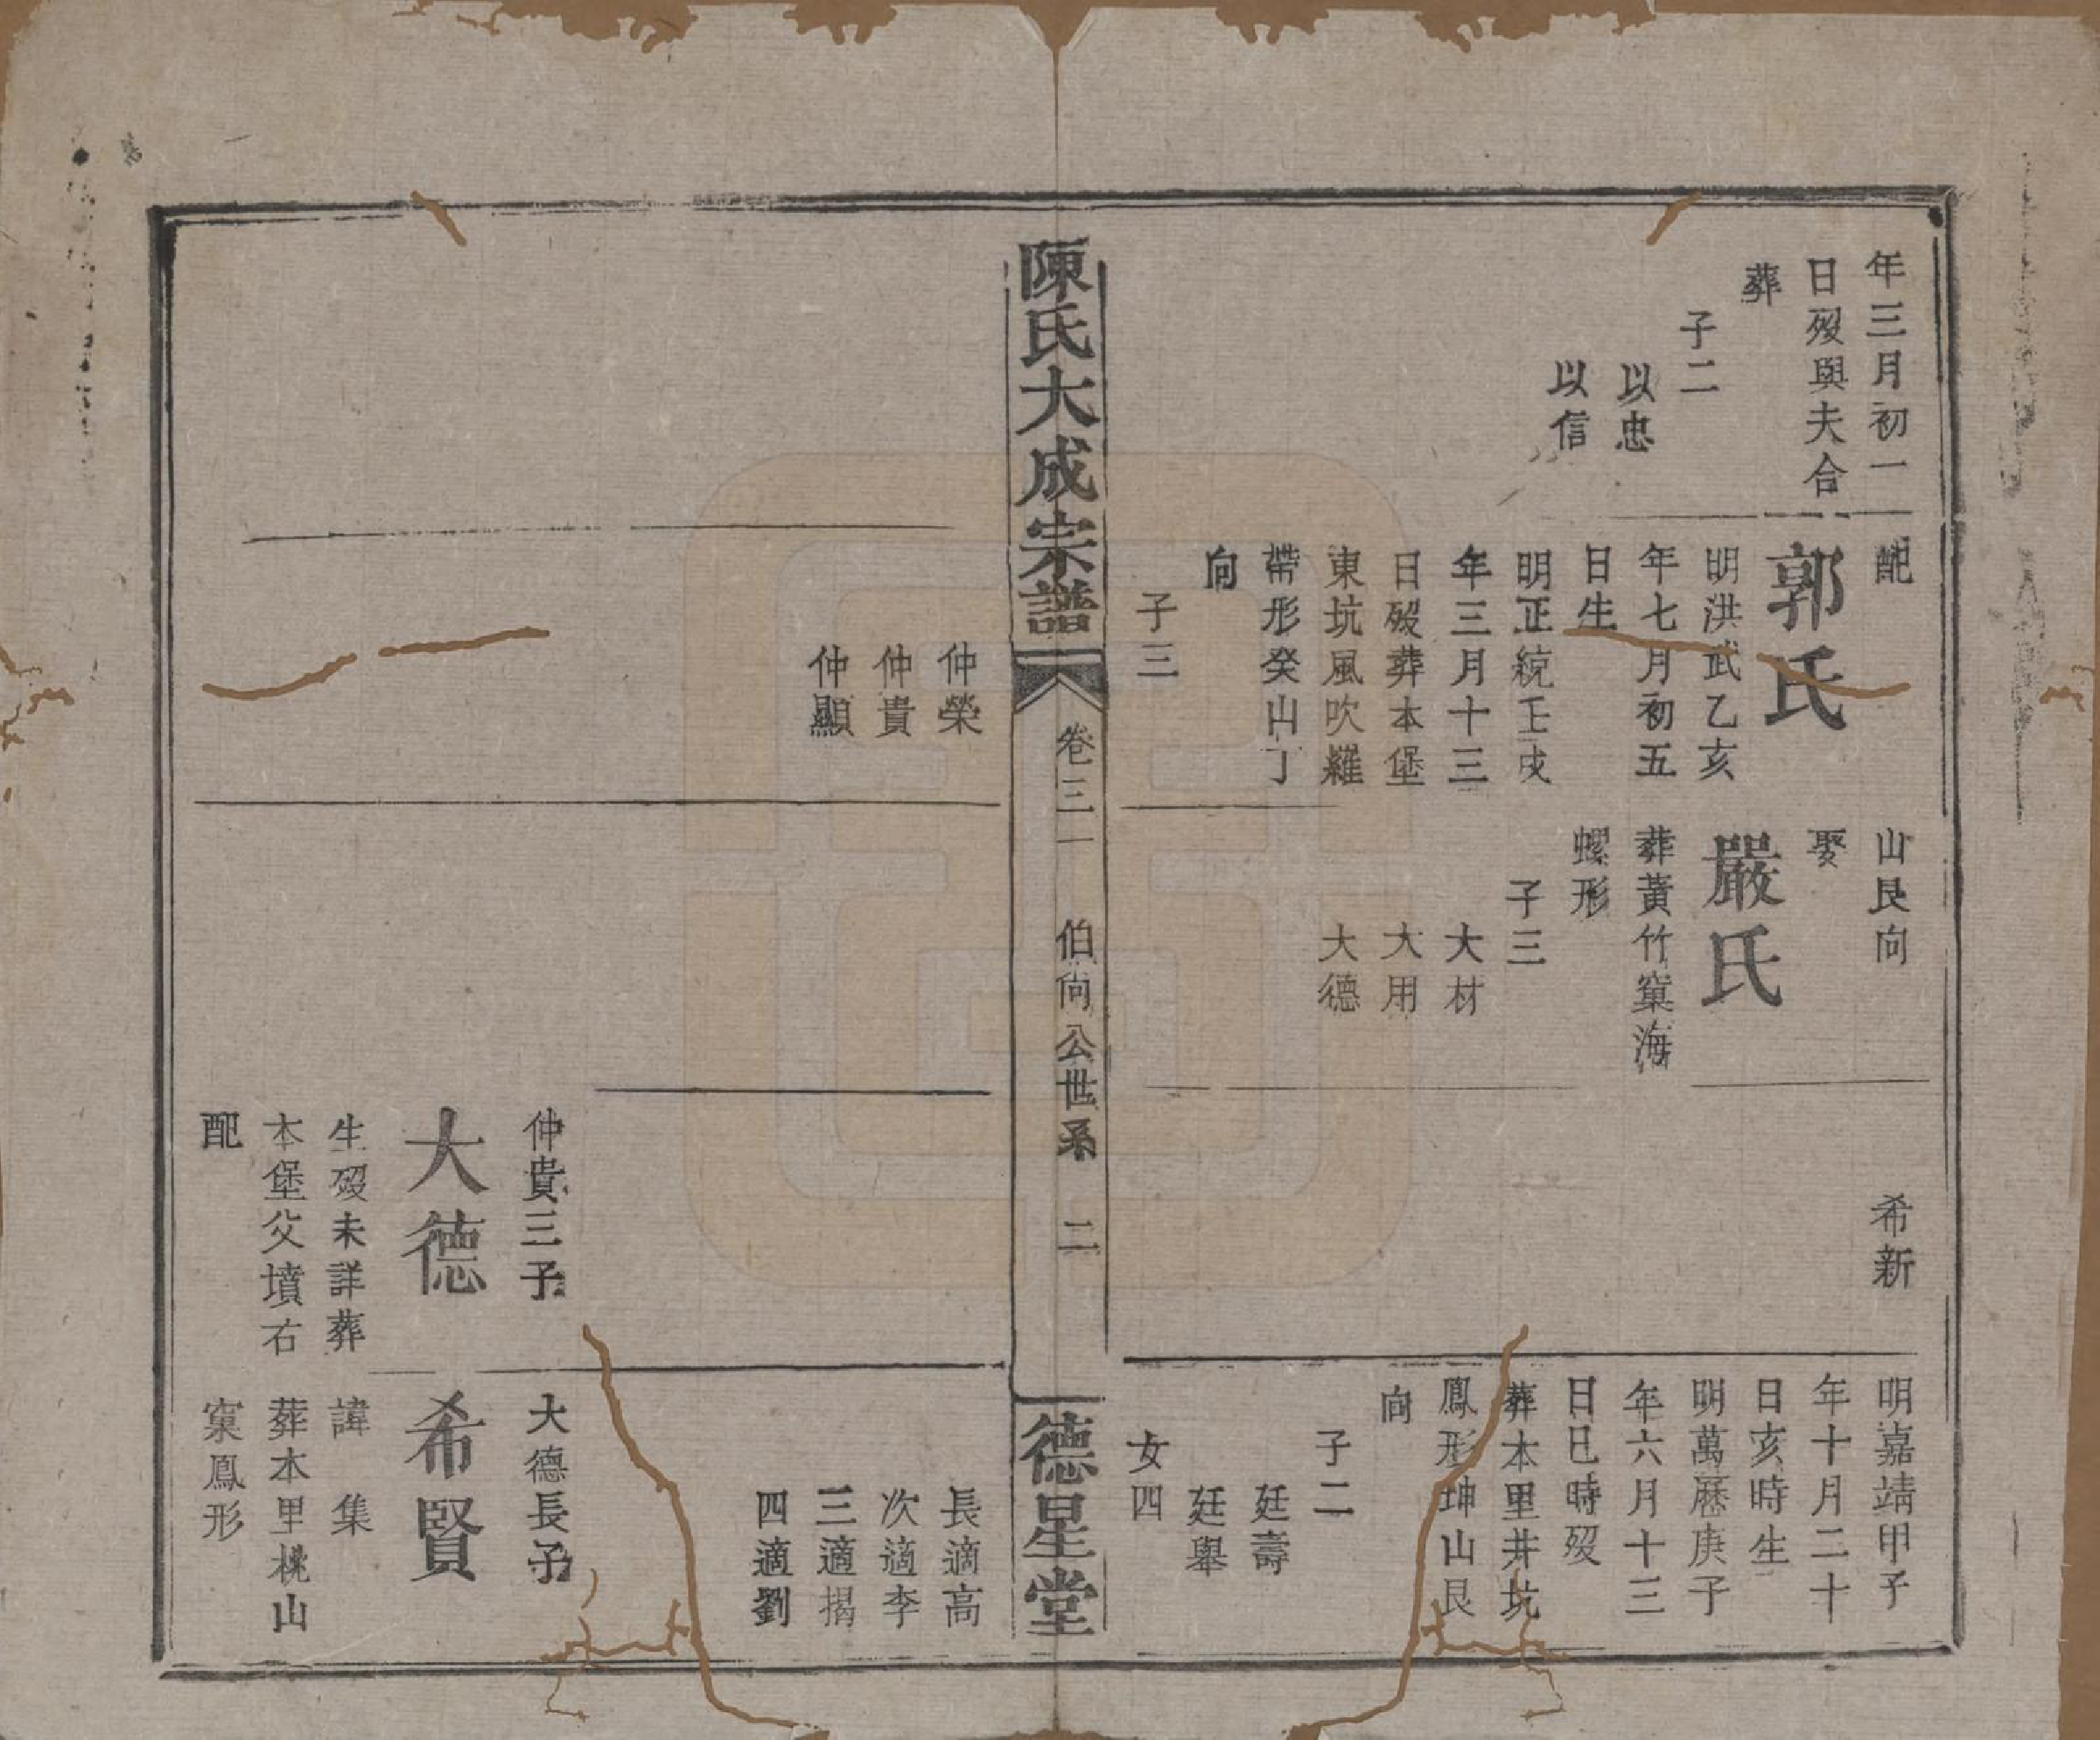 年三月初一
日歿與夫合
葬
子二
以忠
以信
配
郭氏
明洪武乙亥
年七月初五
日生
明正統壬戌
年三月十三
日歿葬本堡
東坑風吹羅
帶形癸山丁
向
子三
山艮向
娶
嚴氏
葬黃竹窠海
螺形
子三
大材
大用
大德
希新
明嘉靖甲子
年十月二十
日亥時生
明萬曆庚子
年六月十三
日巳時歿
葬本里井坑
鳳形坤山艮
向
子二
廷壽
廷舉
女四
陳氏大成宗譜
卷三一
伯尙公世系
二
德星堂
仲榮
仲貴
仲顯
仲貴三子
大德
生歿未詳葬
本堡父墳右
配
長適高
次適李
三適揭
四適劉
大德長子
希賢
諱集
葬本里桃山
窠鳳形